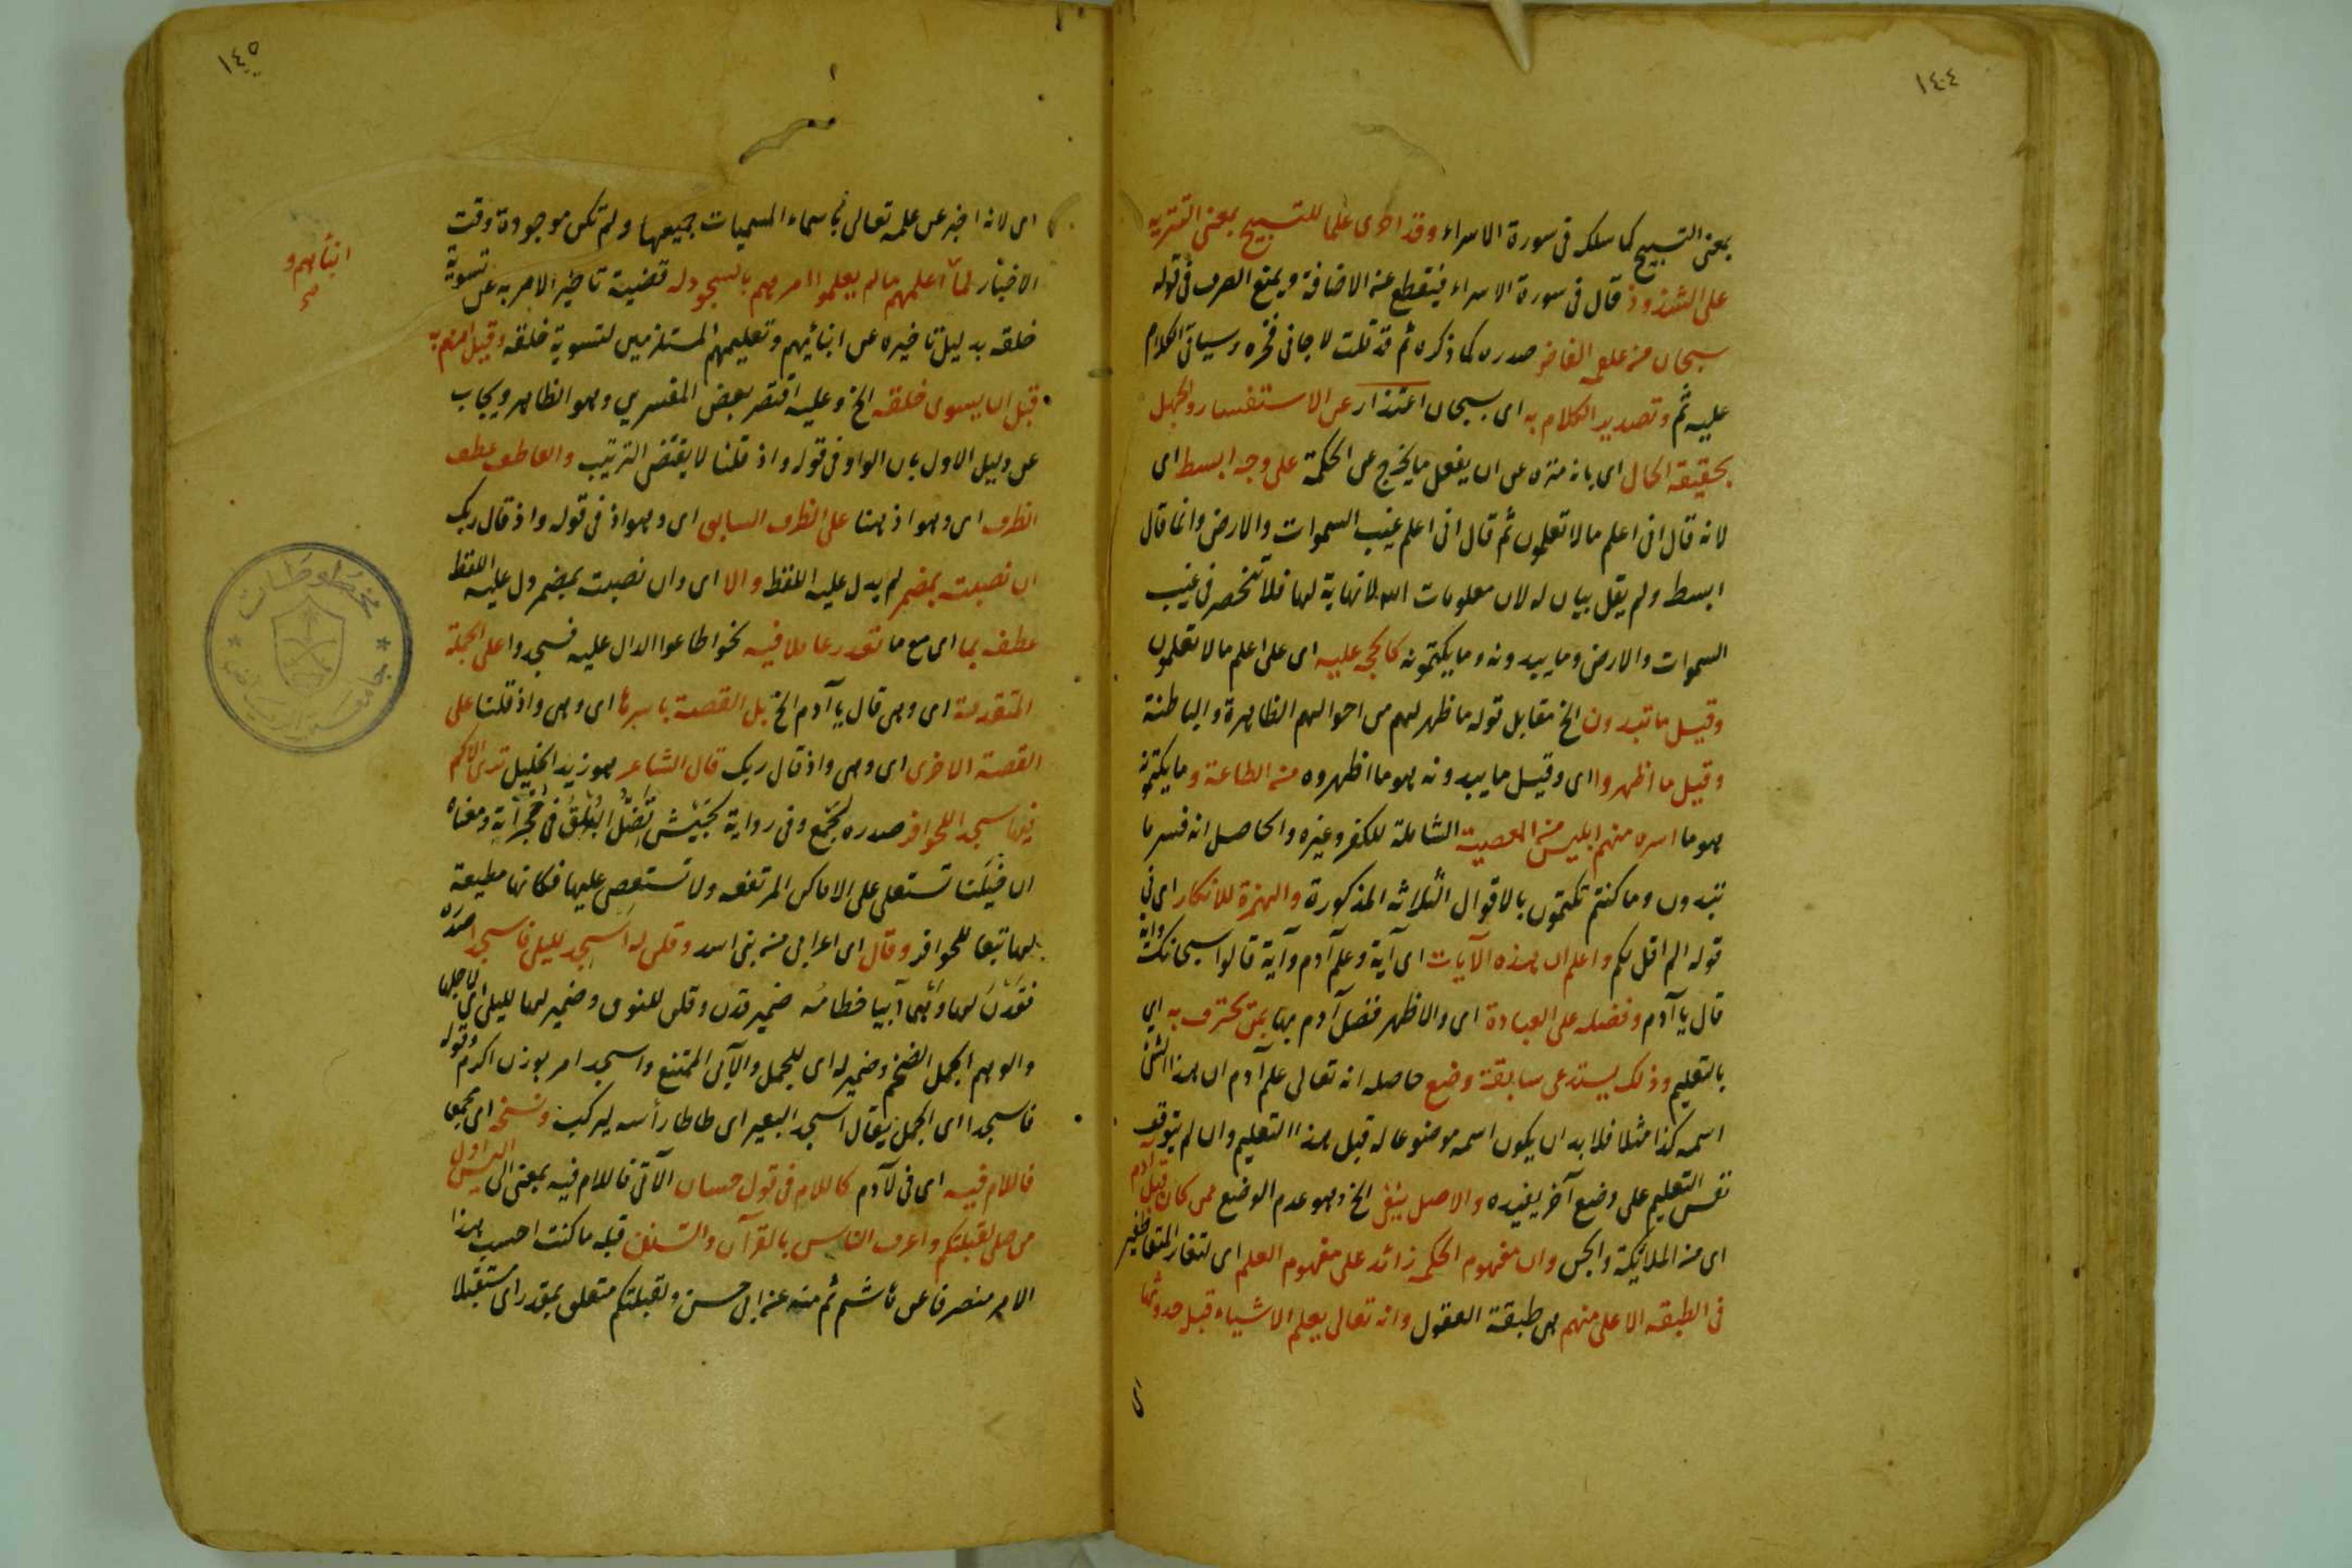 ١٤٤
بمعنى التسبيح كما سلكه فى سورة الاسراء وقد اجرى علما للتسبيح بمعنى التنزيه
على الشذوذ قال فى سورة الاسراء فينقطع عنه الاضافة ويمنع الصرف فى قوله
سبحان من علقمة الفاخر صدره كما ذكره ثم قد قلت لما جانى فخره وسياتى الكلام
عليه ثم وتصدير الكلام به اى بسبحان اعتذار عن الاستفسار والجهل
بحقيقة الحال اى بانه منزه عن ان يفعل ما يخرج عن الحكمة على وجه ابسط اى
لانه قال انى اعلم ما لا تعلمون ثم قال انى اعلم غيب السموات والارض وانما قال
ابسط ولم يقل بيان له لان معلومات الله لا نهاية لها فلا تنحصر فى غيب
السموات والارض وما يبدونه وما يكتمونه كالحجة عليه اى على اعلم ما لا تعلمون
وقيل ما تبدون الخ مقابل قوله ما ظهر لهم من احوالهم الظاهرة والباطنة
وقيل ما اظهروا اى وقيل ما يبدونه هو ما اظهروه من الطاعة وما يكتمونه
هو ما اسره منهم ابليس من المعصية الشاملة للكفر وغيره والحاصل انه فسر ما
تبدون وما كنتم تكتمون بالاقوال الثلاثه المذكورة والهمزة للانكار اى فى
قوله الم اقل لكم واعلم ان هذه الآيات اى آية وعلم آدم وآية قالوا سبحانك وآية
قال يا آدم وفضله على العبادة اى والاظهر فضل آدم بها بمن يحترف به اي
بالتعليم وذلك يستدعى سابقة وضع حاصله انه تعالى علم آدم ان هذا الشئ
اسمه كذا مثلا فلا بد ان يكون اسمه موضوعا له قبل هذا التعليم وان لم يتوقف
نفس التعليم على وضع آخر يفيده والاصل ينفى الخ وهو عدم الوضع ممن كان قبل آدم
اى من الملائكة والجن وان مفهوم الحكمه زائد على مفهوم العلم اى لتغاير المتعاطفين
فى الطبقه الاعلى منهم هى طبقة العقول وانه تعالى يعلم الاشياء قبل حدوثها
اى
١٤٥
اى لانه اخبر عن علمه تعالى باسماء المسميات جميعها ولم تكن موجودة وقت
الاخبار لما اعلمهم مالم يعلموا امرهم بالسجود له قضيته تاخير الامر به عن تسوية
خلقه بدليل تاخيره عن انبائهم وتعليمهم المستلزمين لتسوية خلقه وقيل امرهم به
قبل ان يسوى خلقه الخ وعليه اقتصر بعض المفسرين وهو الظاهر ويجاب
عن دليل الاول بان الواو فى قوله واذ قلنا لا يقتضى الترتيب والعاطف عطف
الظرف اى وهو اذ هنا على الظرف السابق اى وهو اذ فى قوله واذ قال ربك
ان نصبت بمضمر لم يدل عليه اللفظ والا اى وان نصبت بمضمر دل عليه اللفظ
عطفه بما اى مع ما تقدر عاملا فيه نحو اطاعوا الدال عليه فسجدوا على الجملة
المتقدمة اى وهى قال يا آدم الخ بل القصة باسرها اى وهى واذ قلنا على
القصة الاخرى اى وهى واذ قال ربك قال الشاعر هو زيد الخليل ترى الاكم
فيها سجدا للحوافر صدره بجمع وفى رواية بجيش تضل البلق فى حجراته ومعناه
ان خيلنا تستعلى على الاماكن المرتفعه ولا تستعصى عليها فكانها مطيعة
لها تبعا للحوافر وقال اى اعرابى من بنى اسد وقلن له اسجد لليلى فاسجدا صدره
فقدن لها وهما آبيا خطامه ضمير قدن وقلن للنوق وضمير لها لليلى اى لاجلها
والوهم الجمل الضخم وضمير له اى للجمل والآبى الممتنع واسجد امر بوزن اكرم وقوله
فاسجدا اى الجمل يقال اسجد البعير اى طاطا رأسه ليركب ونسخه اى جمعا
فاللام فيه اى فى لآدم كاللام فى قول حسان الآتى فاللام فيه بمعنى الى اليس اول
من صلى لقبلتكم واعرف الناس بالقرآن والسنن قبله ما كنت احسب هذا
الامر منصرفا عن هاشم ثم منه عن ابى حسن ولقبلتكم متعلق بمقدر اى مستقبلا
انبأهم و
صح
مخطوطات
جامعة